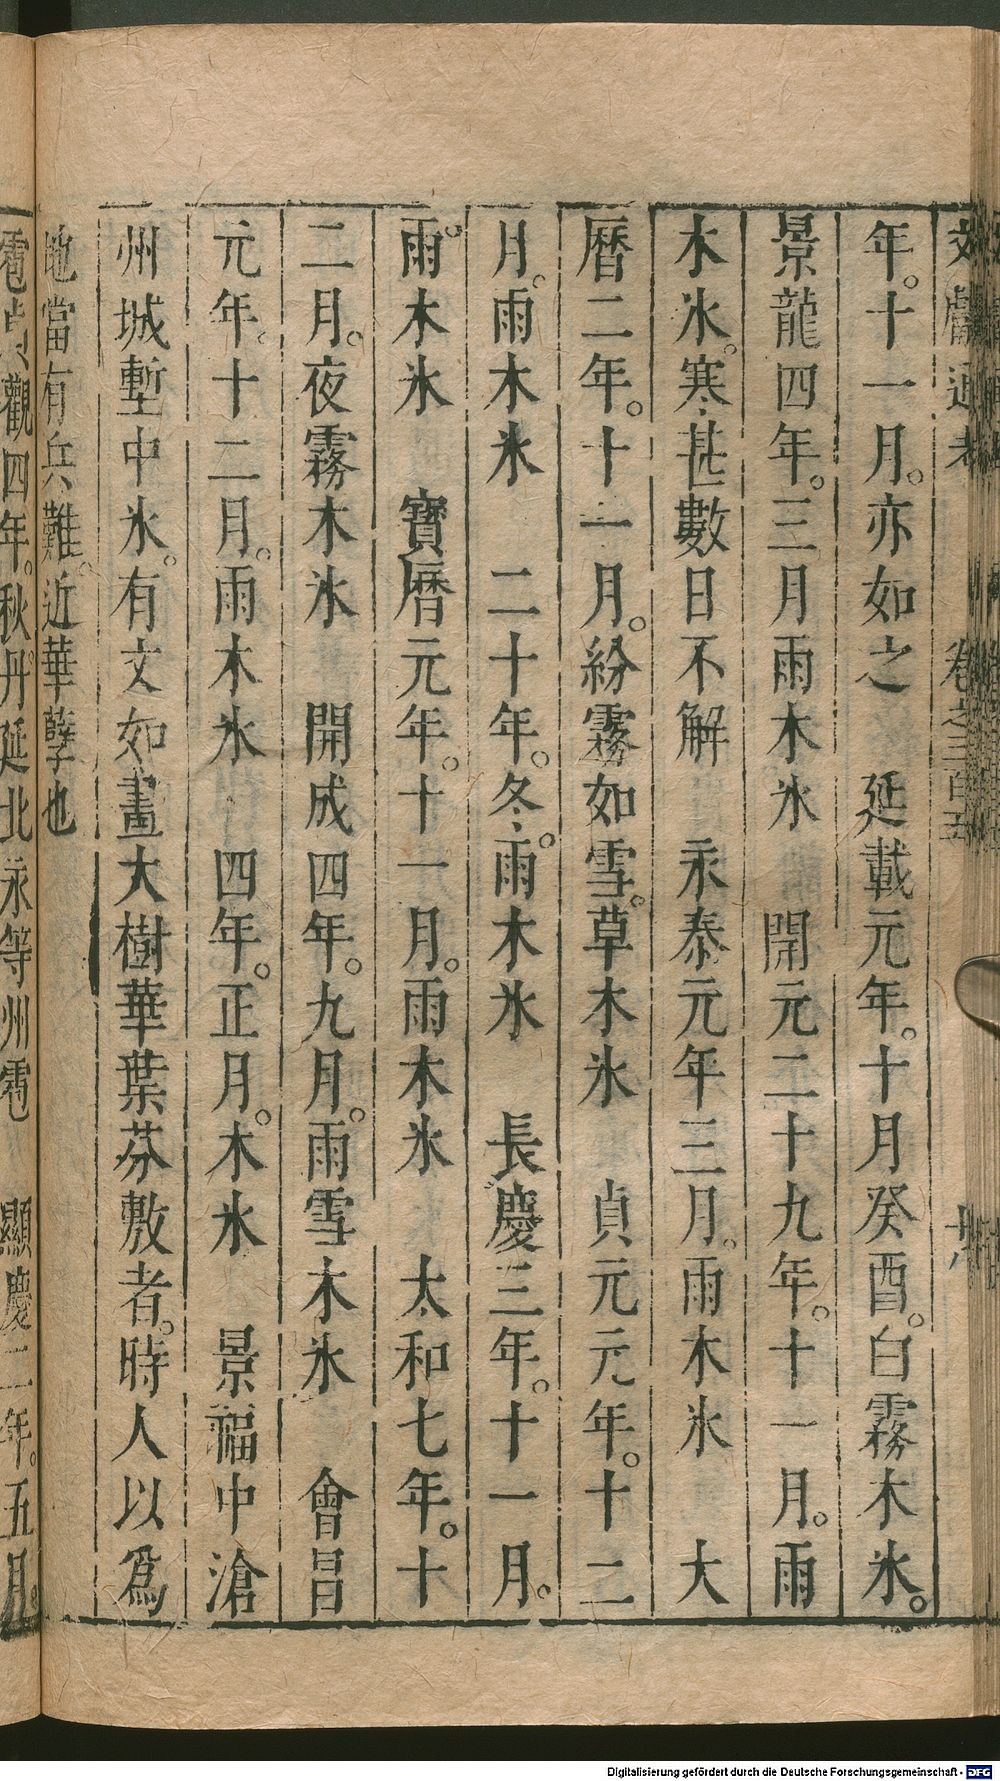 文獻通考 卷之三百五
年。十一月。亦如之 延載元年。十月癸酉。白霧木氷。
景龍四年。三月雨木氷 開元二十九年。十一月。雨
木氷。寒甚數日不解 永泰元年三月。雨木氷 大
曆二年。十一月。紛霧如雪。草木氷 貞元元年。十二
月。雨木氷 二十年。冬。雨木氷 長慶三年。十一月。
雨。木氷 寶曆元年。十一月。雨木氷 太和七年。十
二月。夜霧木氷 開成四年。九月。雨雪木氷 會昌
元年。十二月。雨木氷 四年。正月。木氷 景福中滄
州城塹中氷。有文如畫大樹華葉芬敷者。時人以爲
地當有兵難。近華孽也
雹貞觀四年。秋。丹延北永等州雹 顯慶二年。五月。
Digitalisierung gefördert durch die Deutsche Forschungsgemeinschaft - DFG